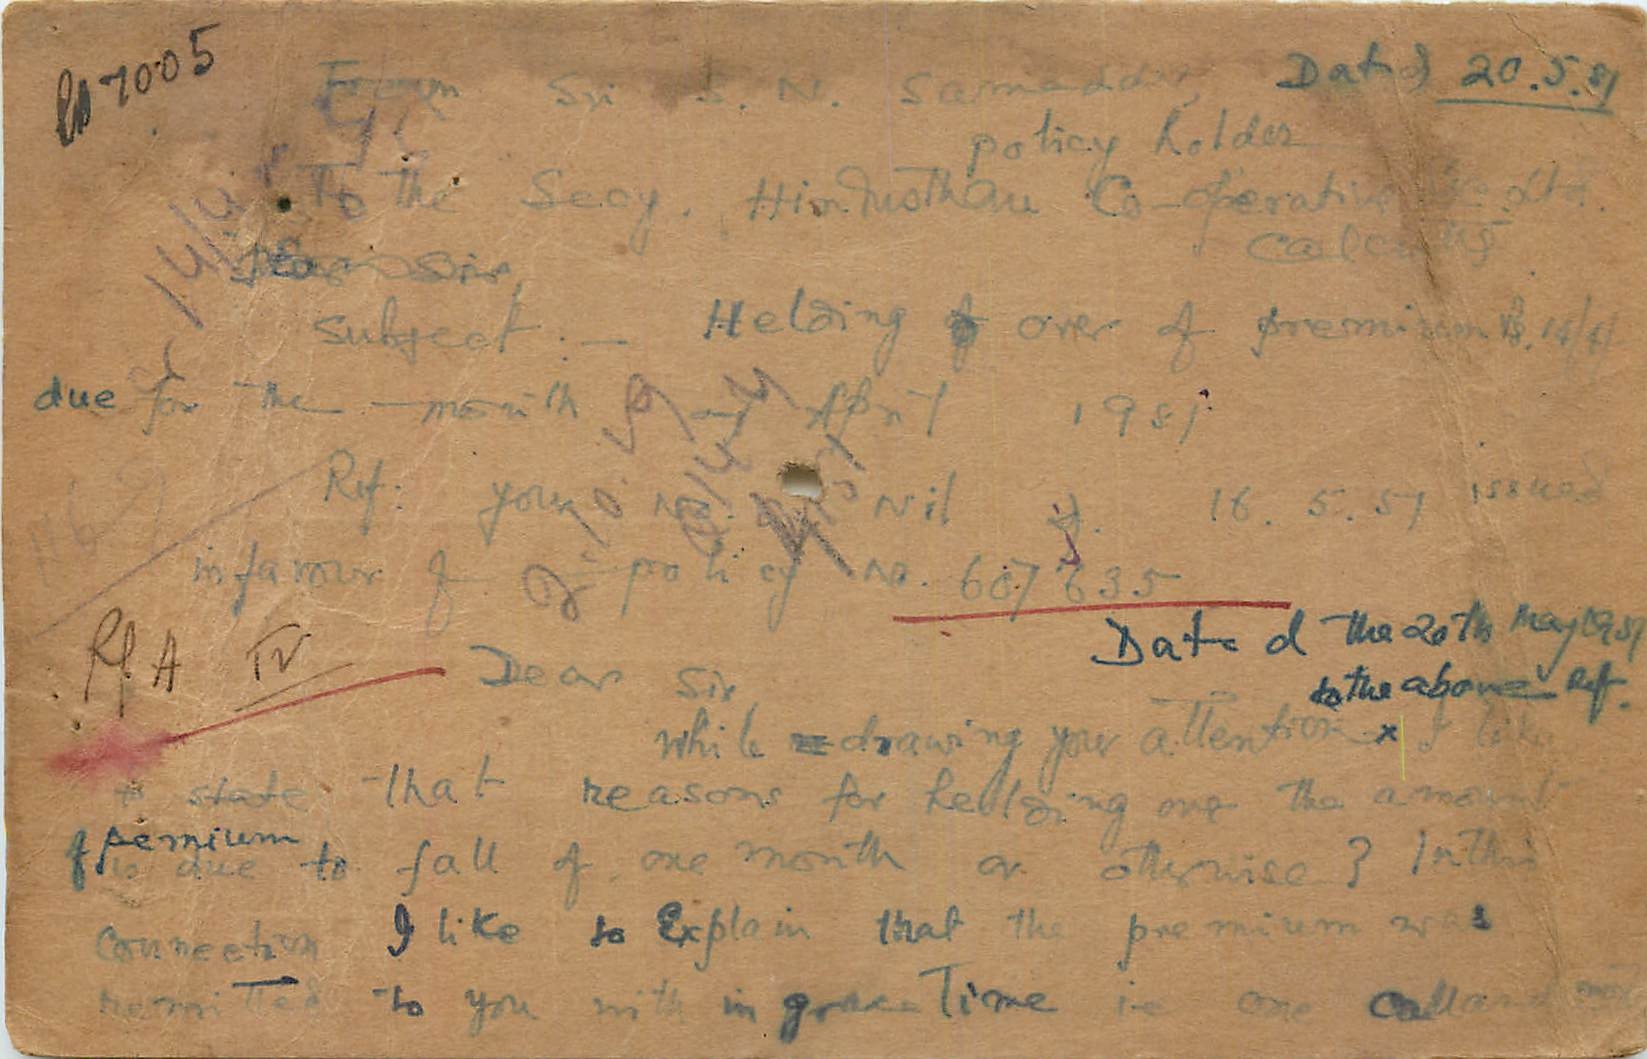 7005
From Sri S. N. Samaddar, Dated 20.5.51
policy holder
To the Secy. Hindusthan Co-operative Ltd.
Calcutta
Dear Sir,
Subject :- Helding over of premium Rs. 14/4/
due for the month of April 1951
Ref: your no. Nil d. 16. 5. 51 issued
in favour of policy no. 607635
Dated the 20th May 1951
to the above Ref.
Ref A IV
Dear Sir
while drawing your attention x I like
to state that reasons for helding over the amount
of pemium
is due to fall of one month or otherwise? In this
connection I like to Explain that the premium was
remitted to you with in grace Time i.e one